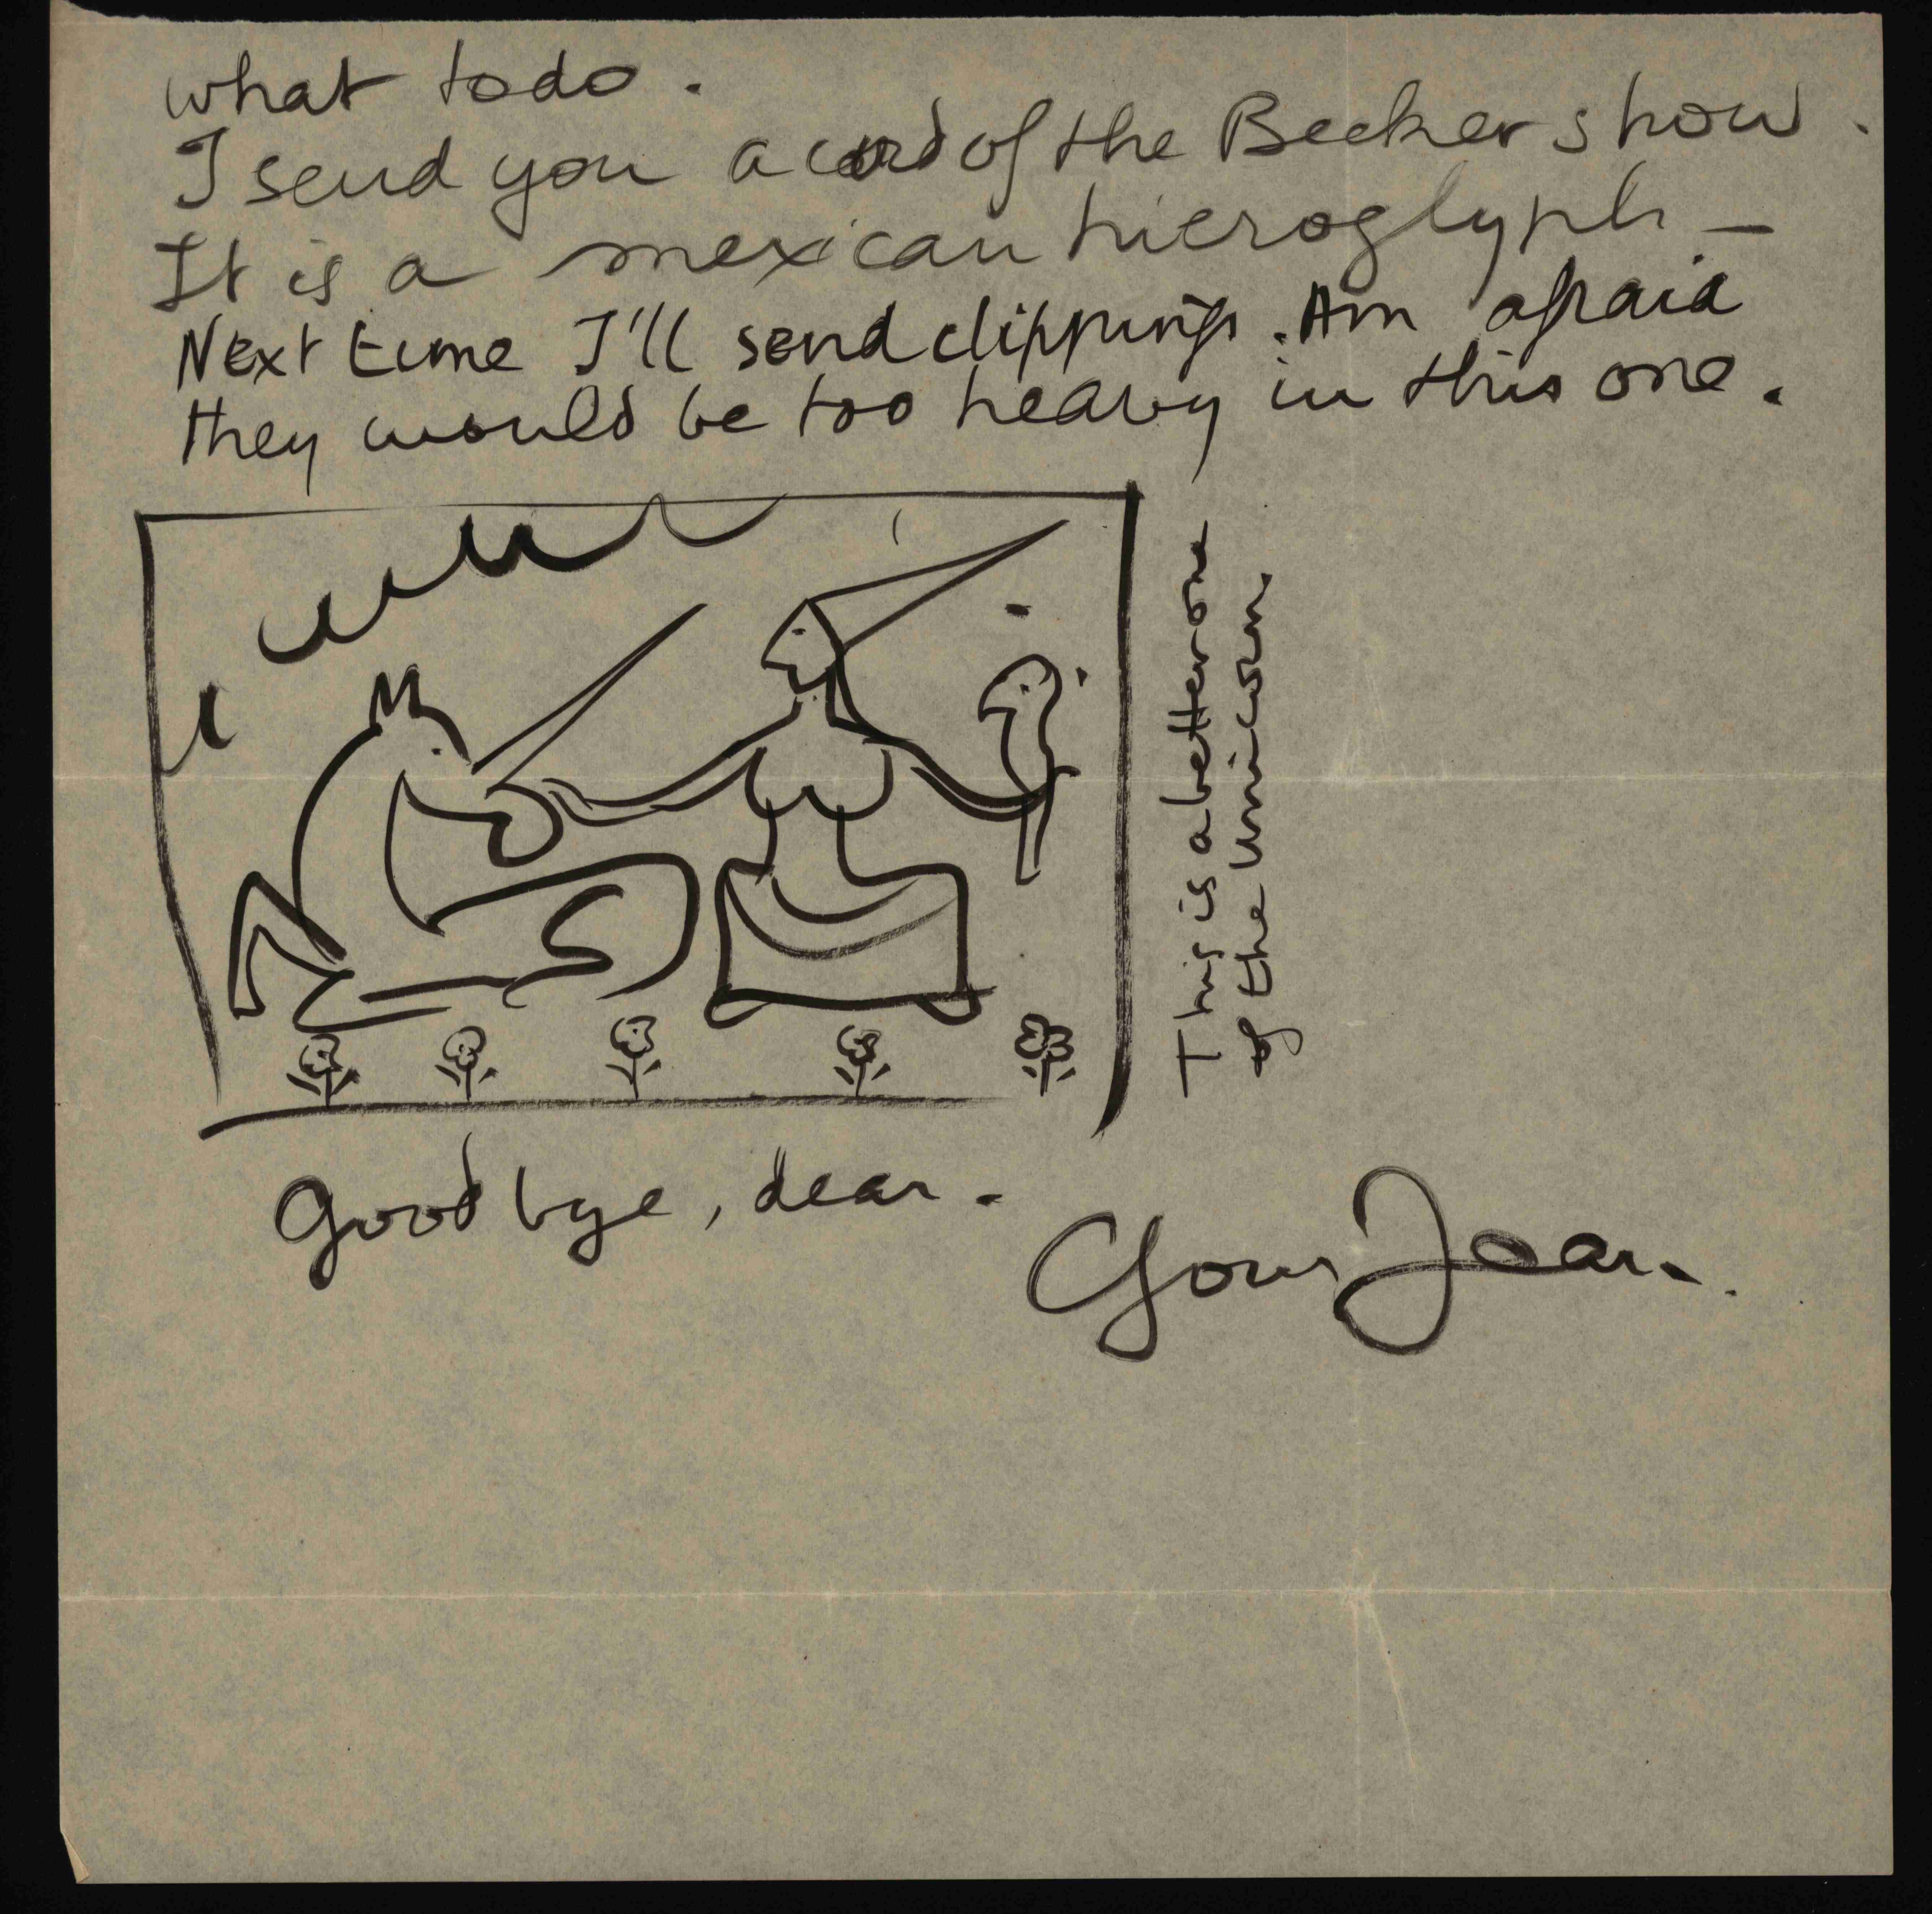 what to do.
I send you a card of the Becker show.
It is a mexican hieroglyph —
Next time I'll send clippings. Am afraid
they would be too heavy in this one.
This is a better one
of the Unicorn.
Good bye, dear.
Your Jean.